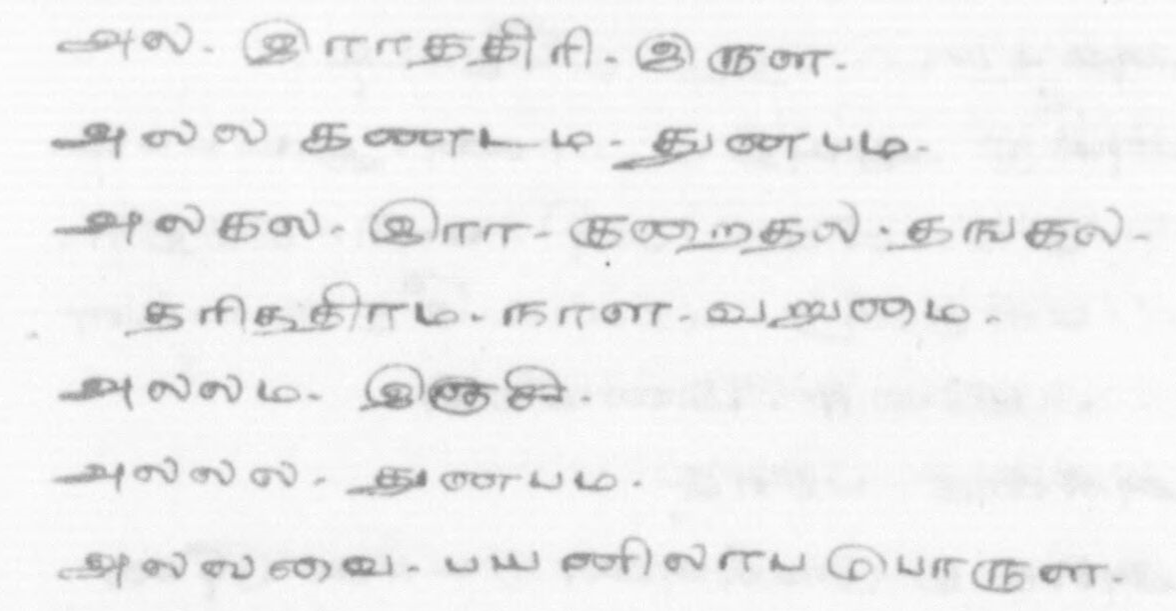 அல. இராததிரி. இருள.
அலல கணடம. துனபம.
அலகல. இரா. குறைதல. தஙகல.
தரிததிரம. நாள. வறுமை.
அலலம. இஞசி.
அலலல. துனபம.
அலலவை. பயனிலாப பொருள.